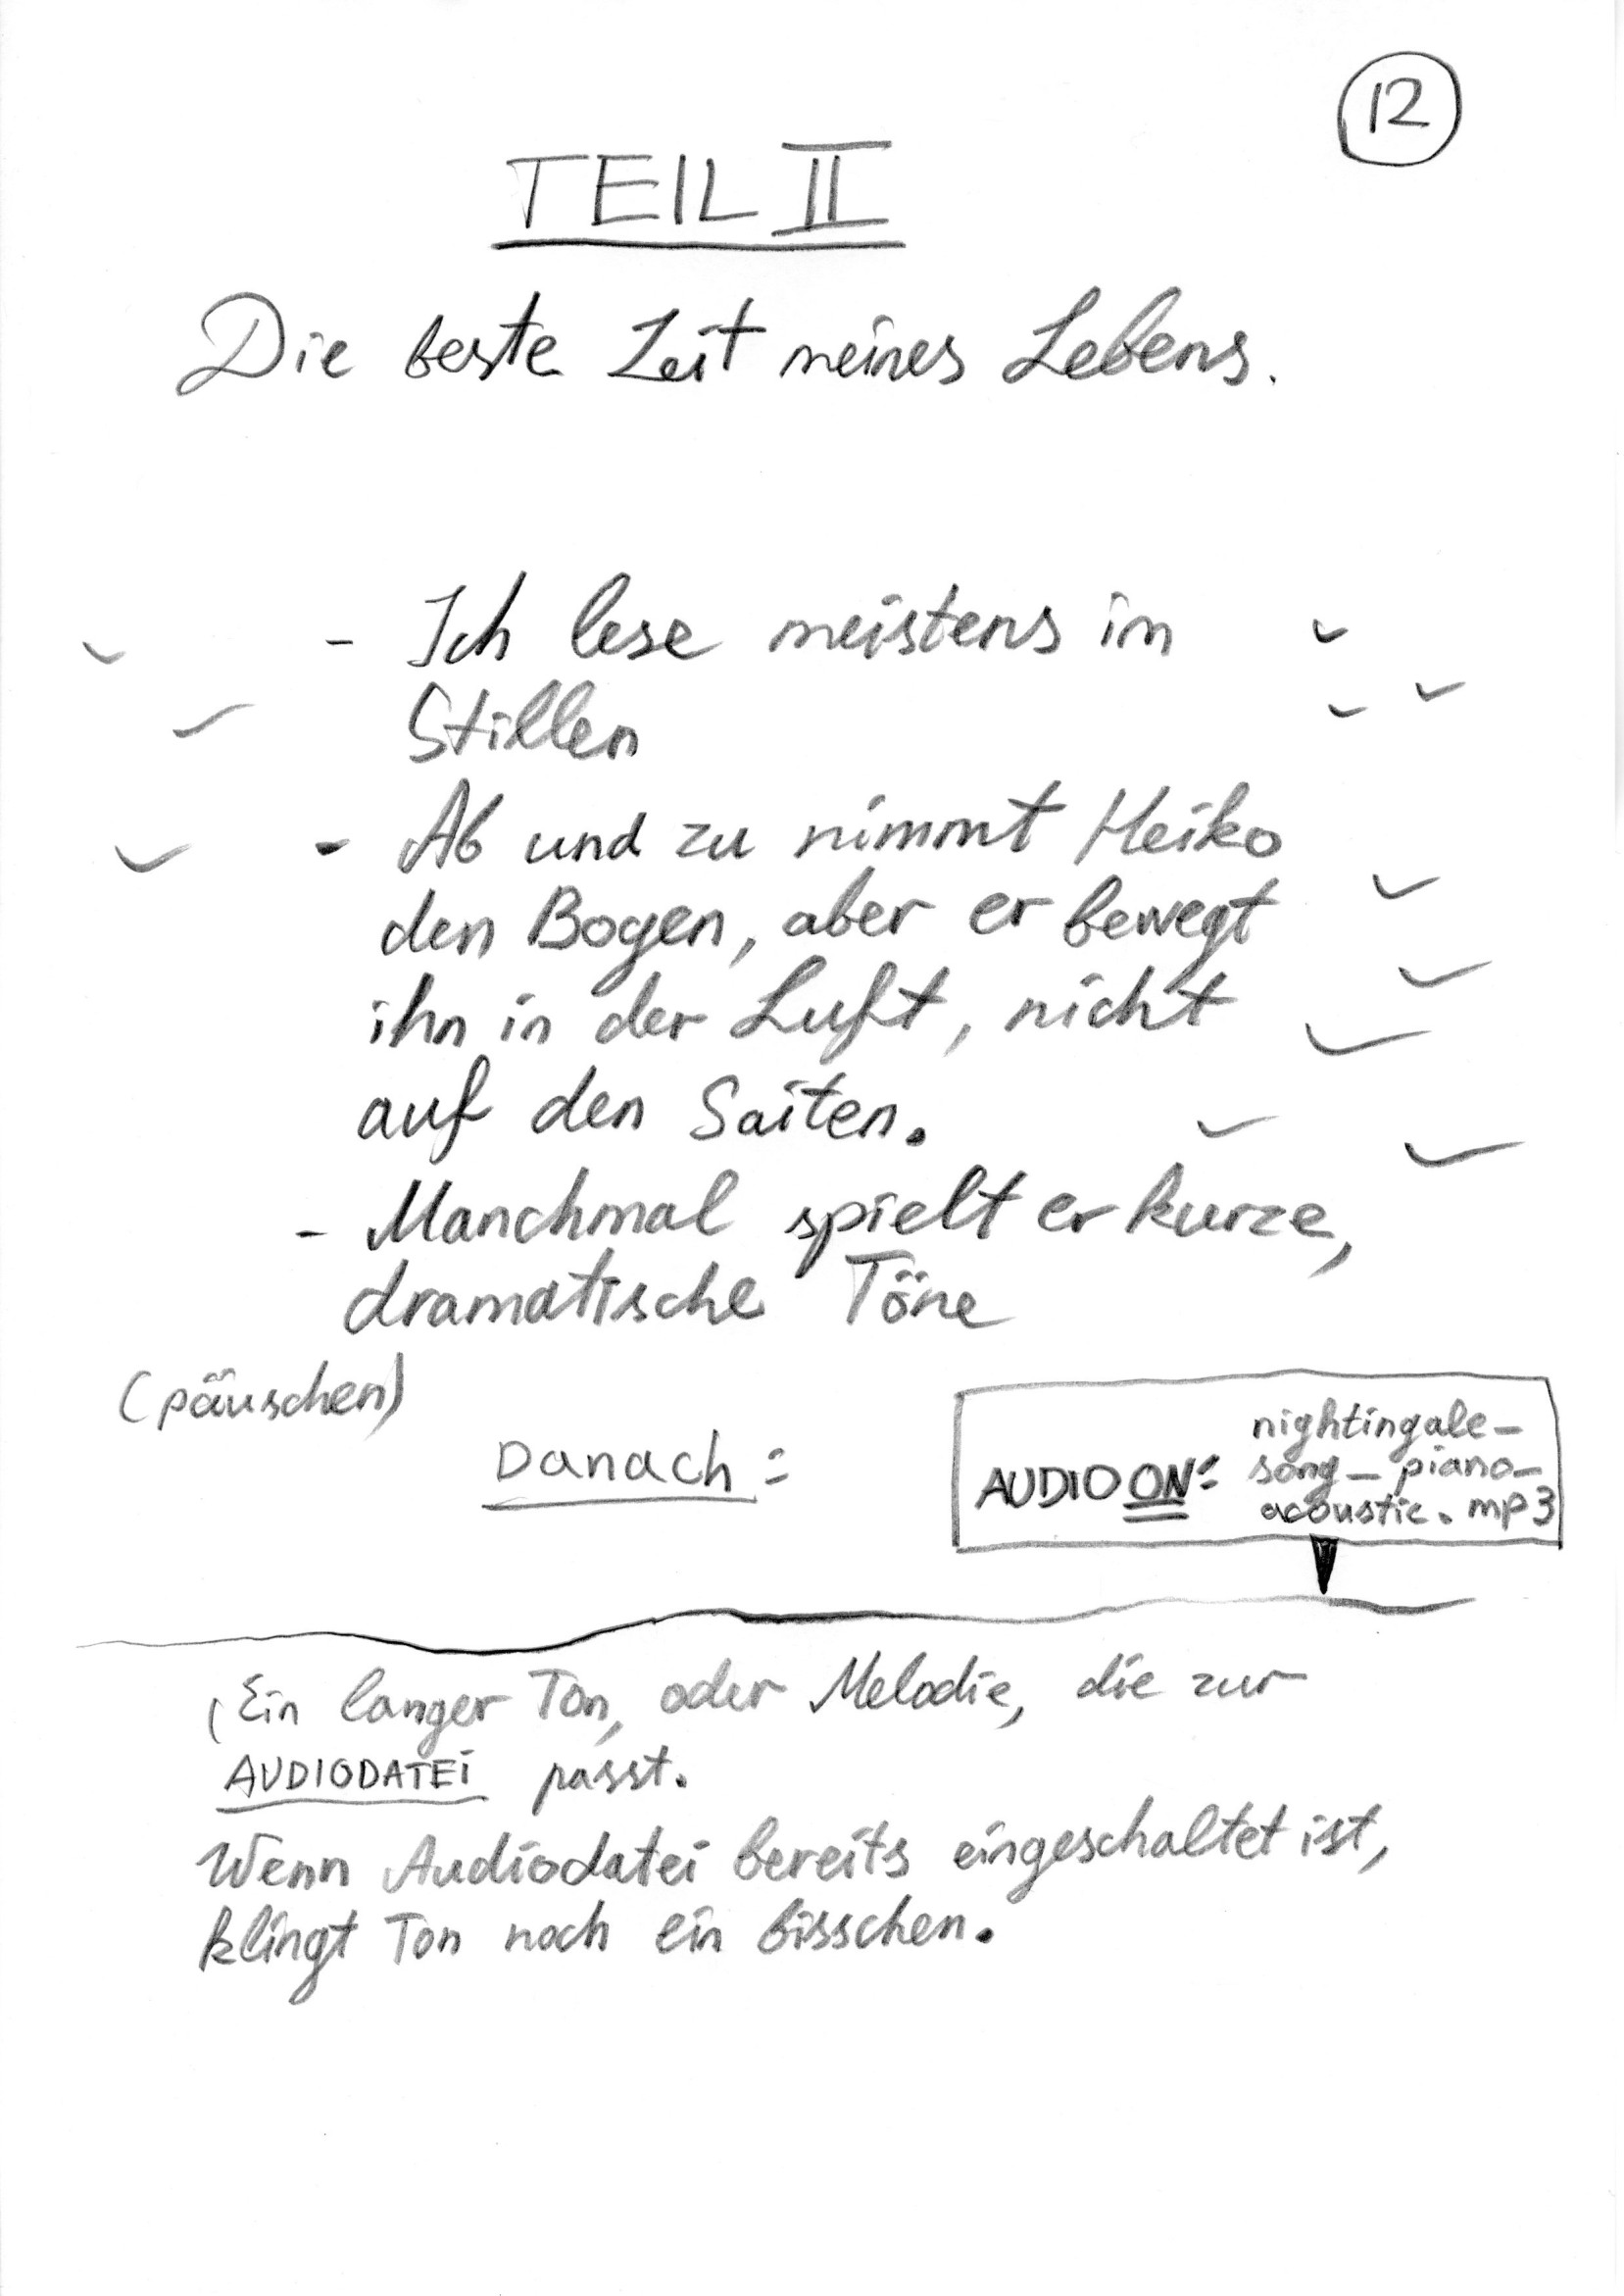 12
TEIL II
Die beste Zeit meines Lebens.
- Ich lese meistens im
Stillen
- Ab und zu nimmt Heiko
den Bogen, aber er bewegt
ihn in der Luft, nicht
auf den Saiten.
- Manchmal spielt er kurze,
dramatische Töne
(päuschen)
Danach:
AUDIO ON: nightingale_
song_piano_
acoustic.mp3
(Ein langer Ton, oder Melodie, die zur
AUDIODATEI passt.
Wenn Audiodatei bereits eingeschaltet ist,
klingt Ton noch ein bisschen.